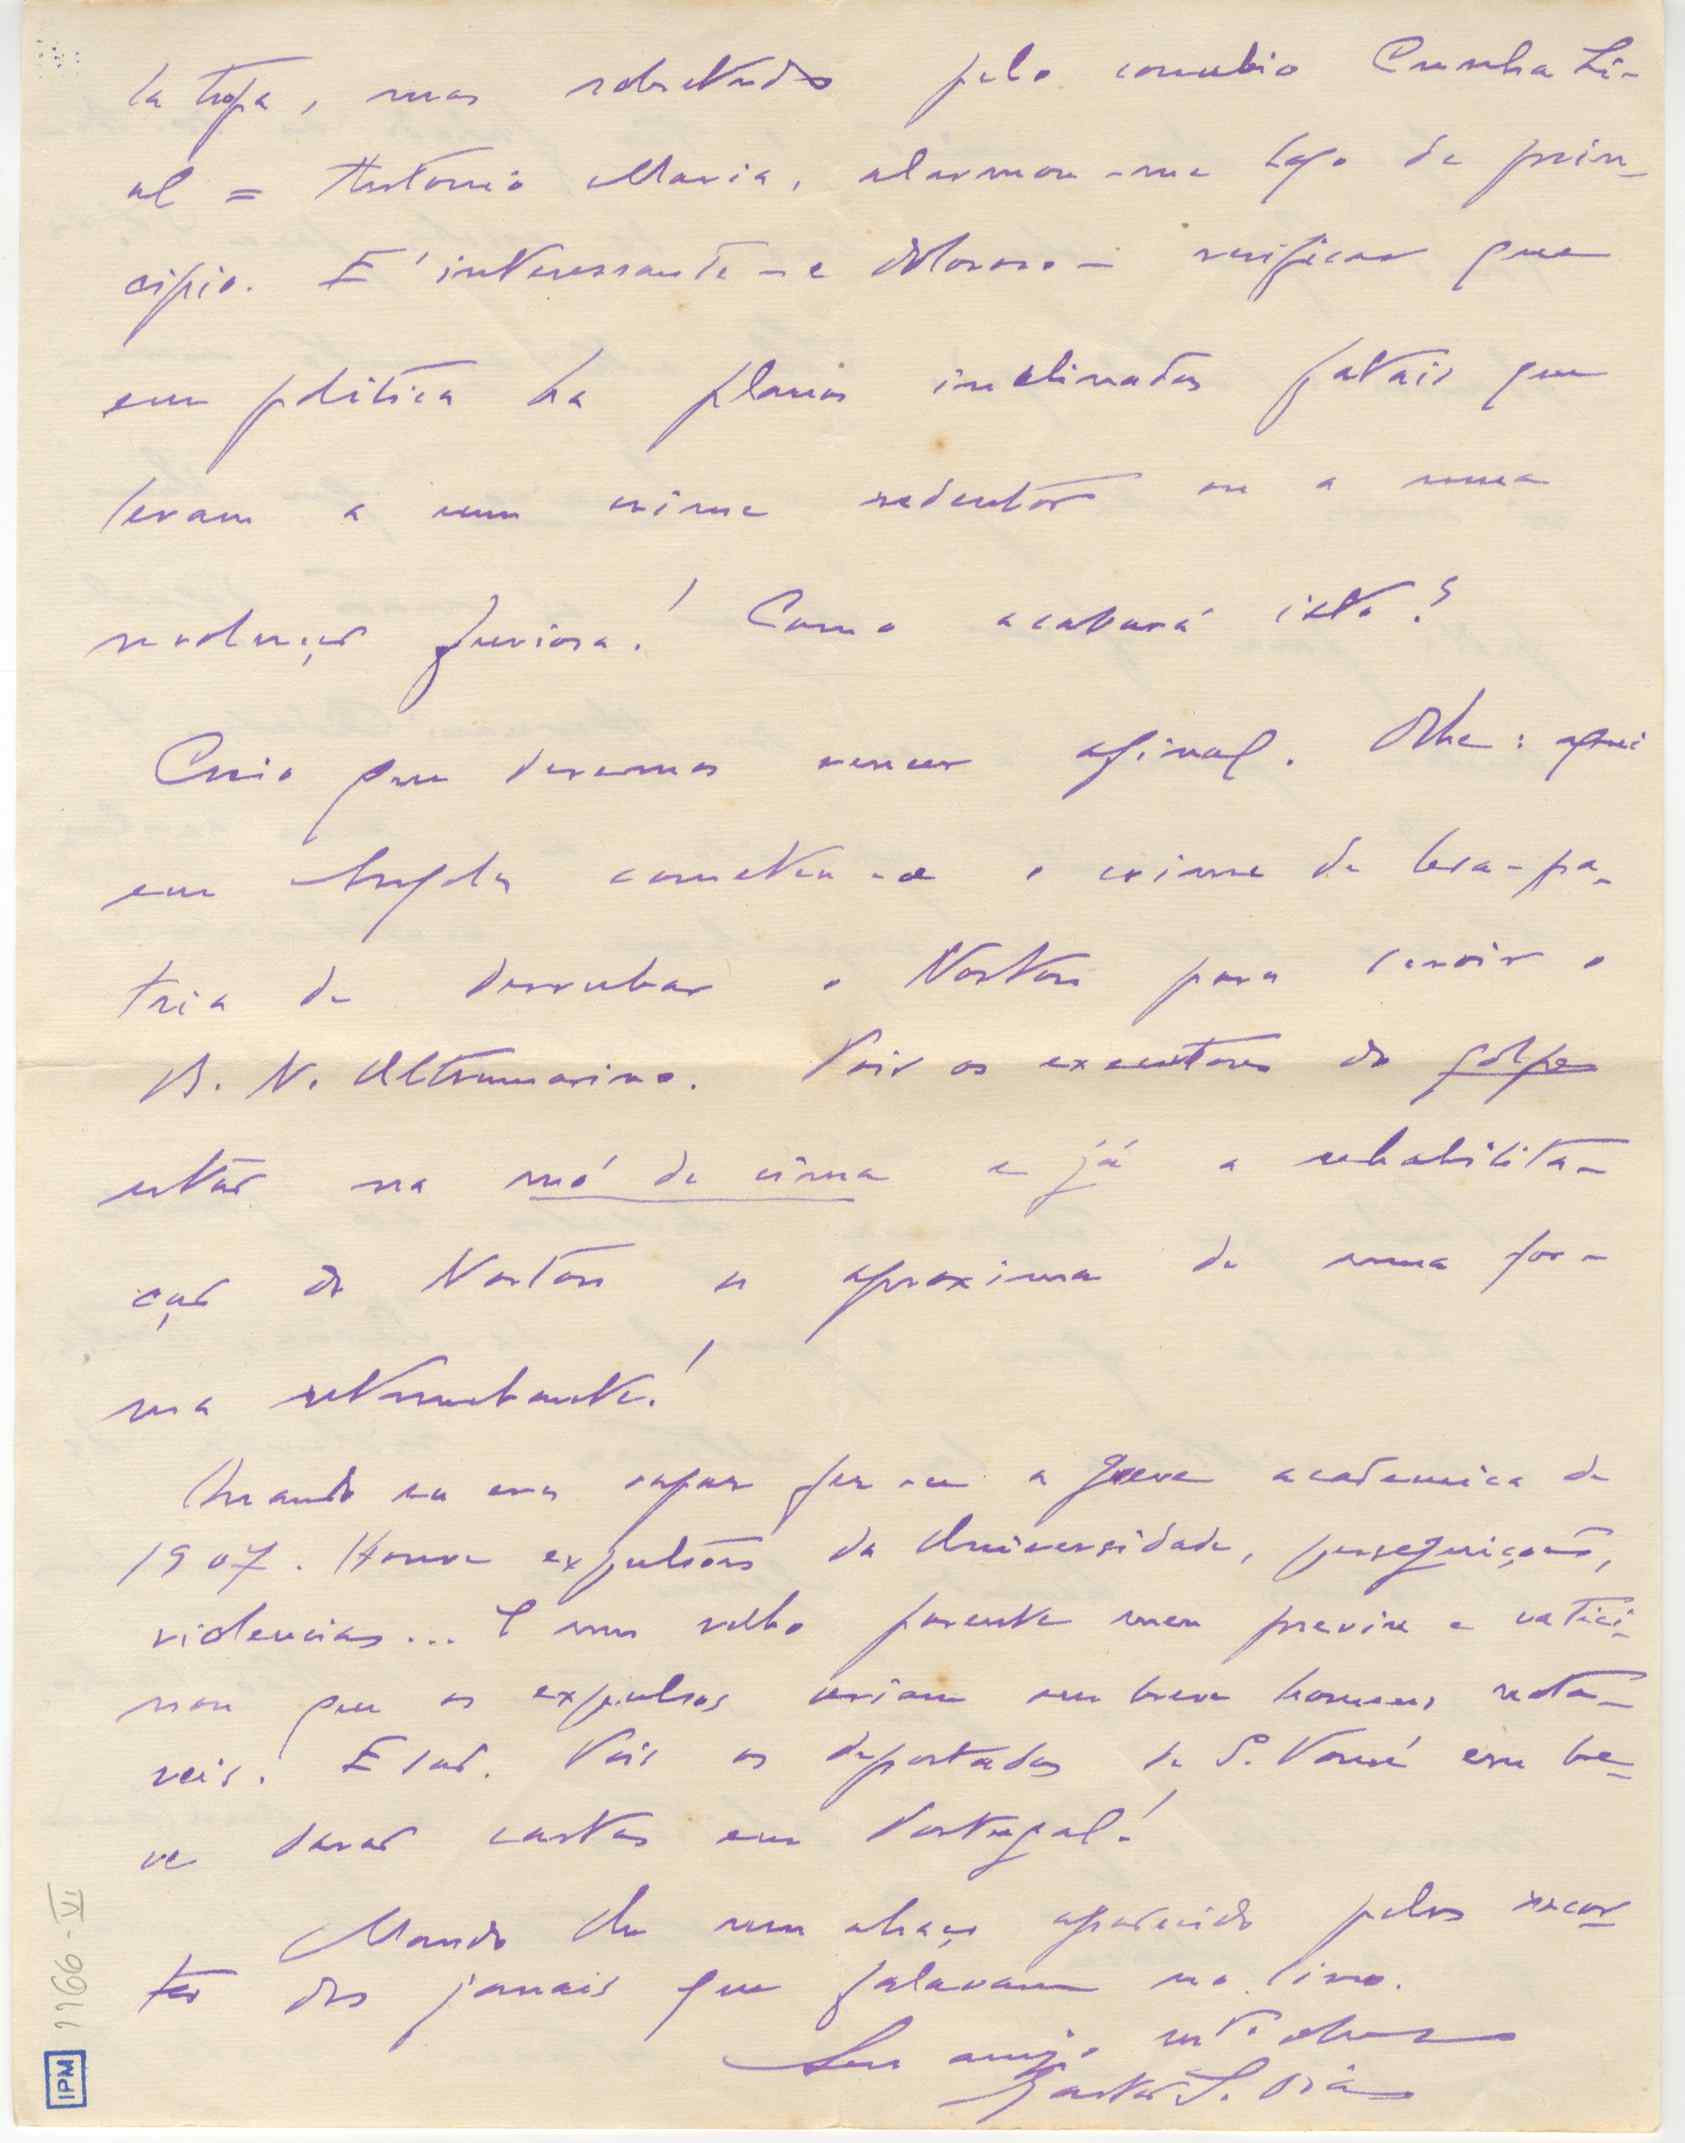 la tropa, mas sobretudo pelo conubio Cunha Li-
al = Antonio Maria, alarmou-me logo de prin-
cipio. E' interessante - e doloroso - verificar que
em politica ha planos inclinados fatais que
levam a um crime redentor ou a uma
revolução furiosa! Como acabará isto?
Creio que devemos vencer afinal. Olhe: aqui
em Angola cometeu-se o crime de lesa-pa-
tria de derrubar o Norton para servir o
B. N. Ultramarino. Pois os executores do golpe
estão na mó de cima e já a rehabilita-
ção do Norton se aproxima de uma for-
ma retumbante!
Quando eu era rapaz fez-se a greve academica de
1907. Houve expulsões da Universidade, perseguições,
violencias... E um velho parente meu previu e vatici-
nou que os expulsos seriam em breve homens notá-
veis. E são. Pois os deportados de S. Tomé em bre-
ve darão cartas em Portugal!
Mando lhe um abraço agradecido pelos recor-
tes dos jornais que falavam no livro.
Seu amigo mto
Gastão S. Dias
1166-VI
IPM